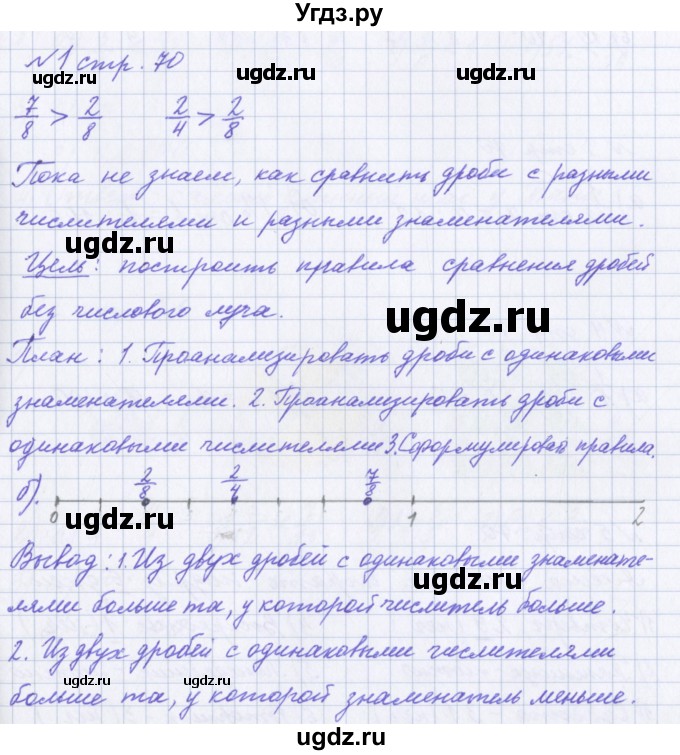 Угдз.ру
№1 стр. 70
7/8 > 2/8 2/4 > 2/8
Пока не знаем, как сравнить дроби с разными
числителями и разными знаменателями.
Цель: построить правила сравнения дробей
без числового луча.
План: 1. Проанализировать дроби с одинаковыми
знаменателями. 2. Проанализировать дроби с
одинаковыми числителями 3. Сформулировать правила.
б). 2/8 2/4 7/8
0 1 2
Вывод: 1. Из двух дробей с одинаковыми знаменате-
лями больше та, у которой числитель больше.
2. Из двух дробей с одинаковыми числителями
больше та, у которой знаменатель меньше.
ugdz.ru
ugdz.ru
ugdz.ru
ugdz.ru
ugdz.ru
ugdz.ru
ugdz.ru
ugdz.ru
ugdz.ru
ugdz.ru
ugdz.ru